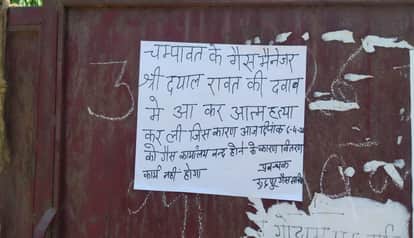 चम्पावत के गैस मैनेजर
श्री दयाल रावत की दबाब
मे आ कर आत्महत्या
कर ली जिस कारण आज दिनांक
को गैस कार्यालय बन्द होने के कारण वितरण
कार्य नही होगा
प्रबन्धक